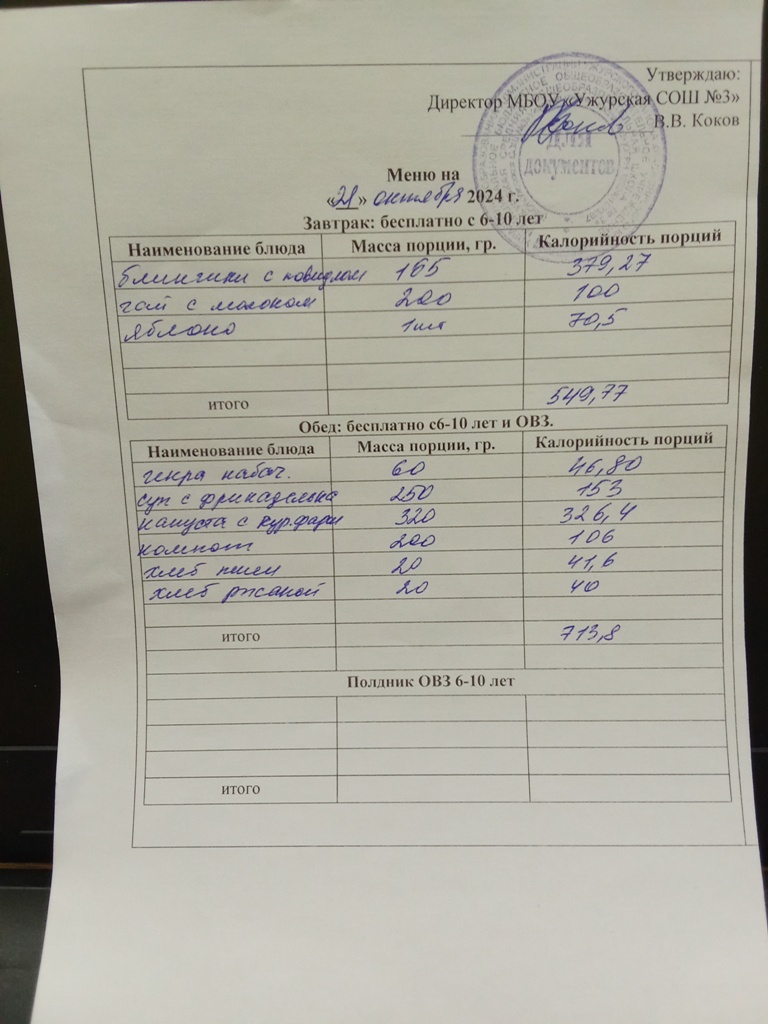 Утверждаю:
Директор МБОУ «Ужурская СОШ №3»
В.В. Коков
ДЛЯ
документов
Меню на
«21» октября 2024 г.
Завтрак: бесплатно с 6-10 лет
Наименование блюда Масса порции, гр. Калорийность порций
блинчики с повидлом 165 379,27
чай с молоком 200 100
яблоко 1шт 70,5
итого 549,77
Обед: бесплатно с6-10 лет и ОВЗ.
Наименование блюда Масса порции, гр. Калорийность порций
икра кабач. 60 46,80
суп с фрикаделька 250 153
капуста с кур.фарш 320 326,4
компот 200 106
хлеб пшен 20 41,6
хлеб ржаной 20 40
итого 713,8
Полдник ОВЗ 6-10 лет
итого